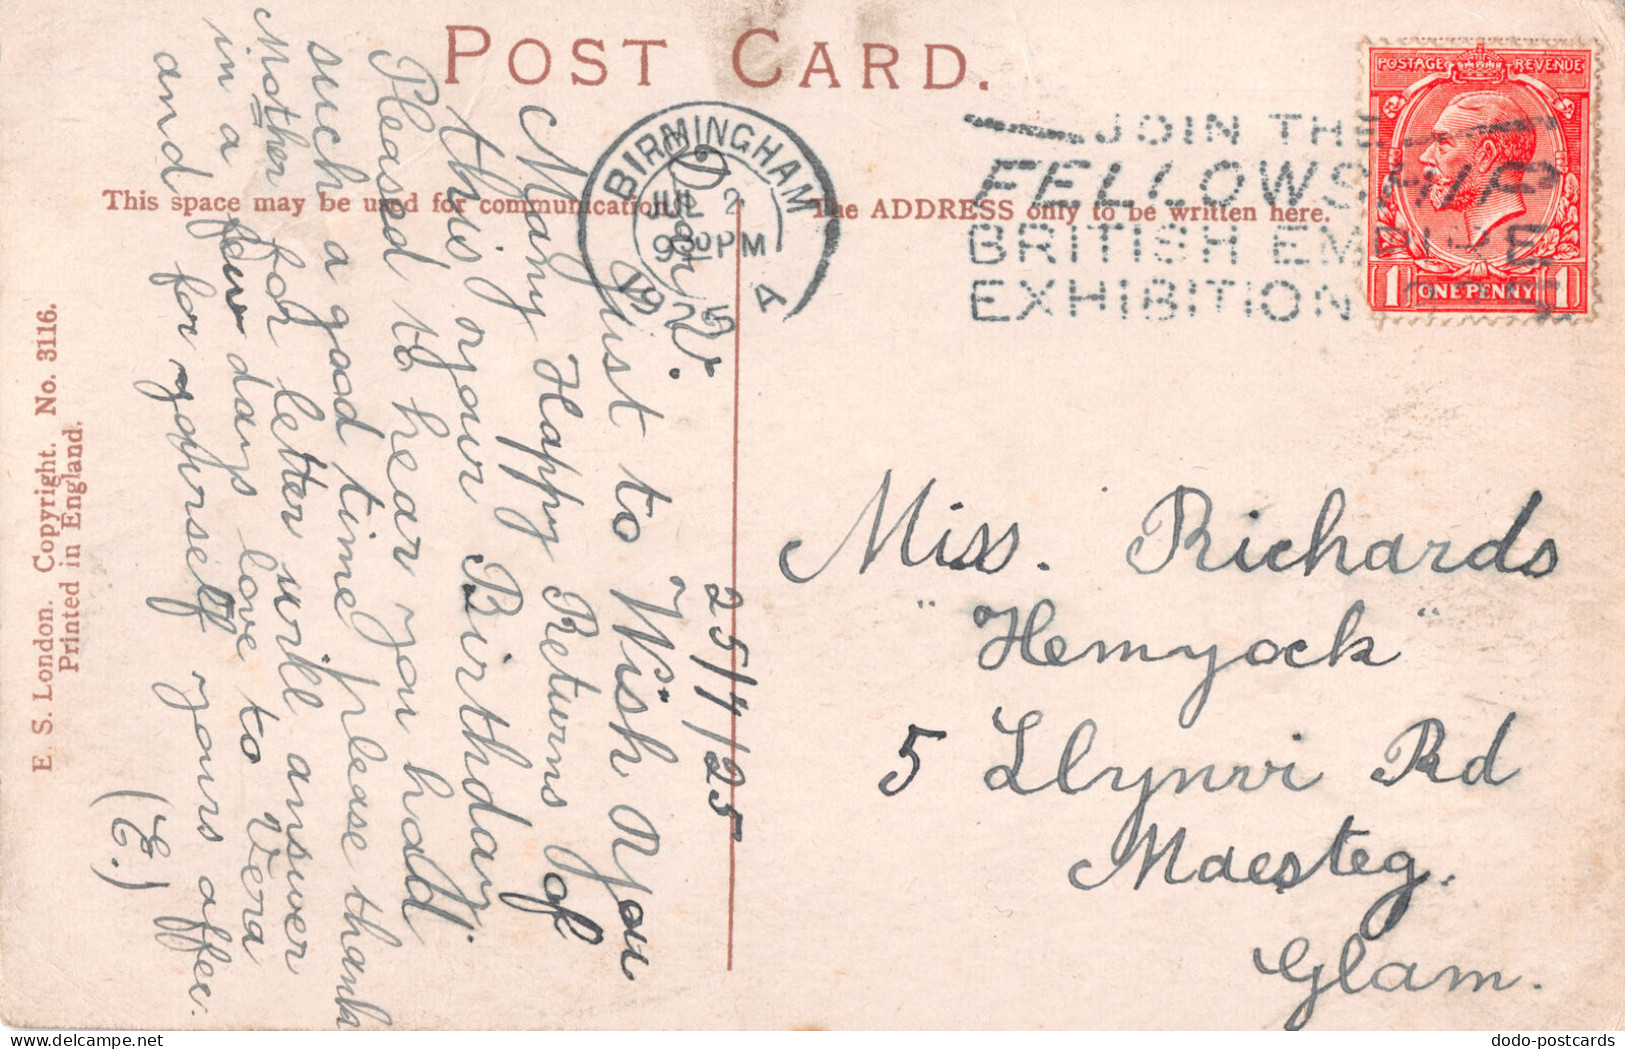 POST CARD.
This space may be used for communication.
The ADDRESS only to be written here.
BIRMINGHAM
JUL 2
9 30 PM
1925
A
JOIN THE
FELLOWSHIP
BRITISH EMPIRE
EXHIBITION
POSTAGE REVENUE
1 ONE PENNY 1
25/7/25
Dear V.
Just to Wish you
Many Happy Returns of
this your Birthday.
Pleased to hear you hadd
such a good time please thank
Mother for letter will answer
in a few days love to Vera
and for yourself yours affec.
(E.)
Miss. Richards
"Hemyock"
5 Llynvi Rd
Maesteg.
Glam.
E. S. London. Copyright. No. 3116.
Printed in England.
dodo-postcards